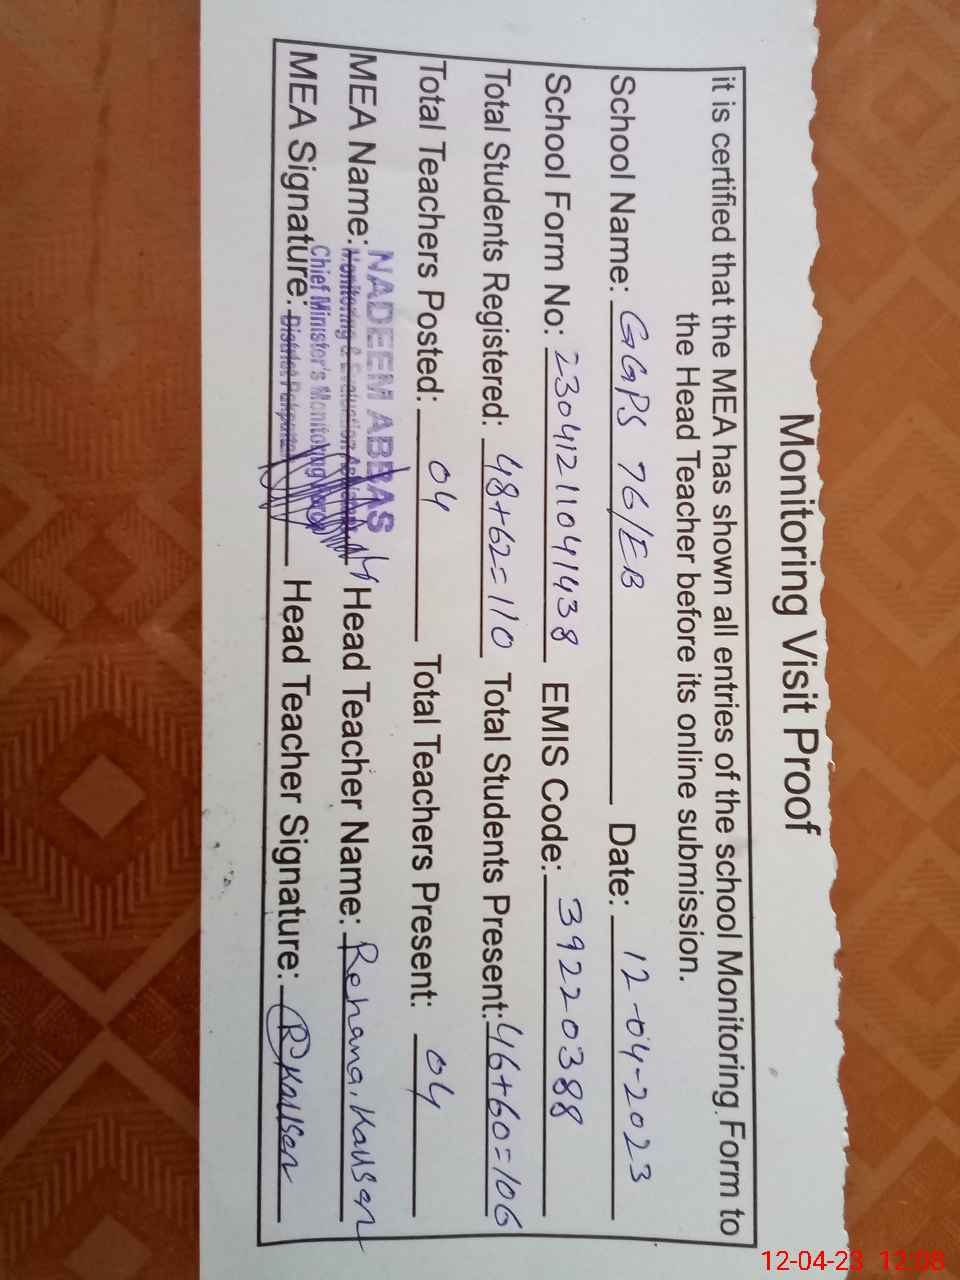 Monitoring Visit Proof
it is certified that the MEA has shown all entries of the school Monitoring Form to
the Head Teacher before its online submission.
School Name: GGPS 76/EB Date: 12-04-2023
School Form No: 23041211041438 EMIS Code: 39220388
Total Students Registered: 48+62=110 Total Students Present: 46+60=106
Total Teachers Posted: 04 Total Teachers Present: 04
NADEEM ABBAS
MEA Name: Monitoring & Evaluation Head Teacher Name: Rehana Kausar
Chief Minister's Monitoring
MEA Signature: District Pakpattan Head Teacher Signature: R Kausar
12-04-23 12:08